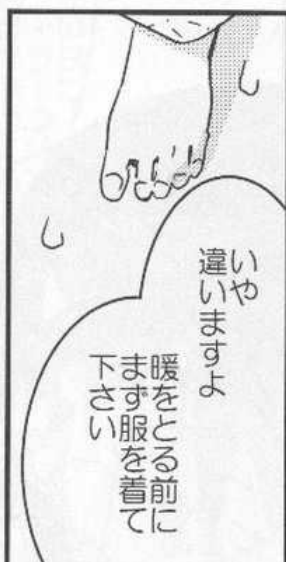 いや
違いますよ
暖をとる前に
まず服を着て
下さい